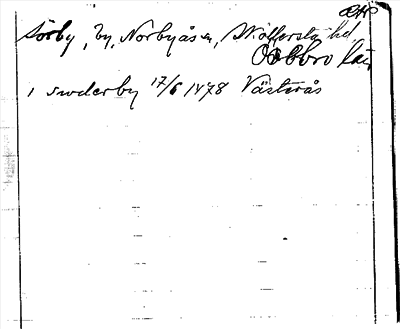 Sörby, by, Norbyås sn, hd
Örebro län
i suderby 17/6 1478 Västerås